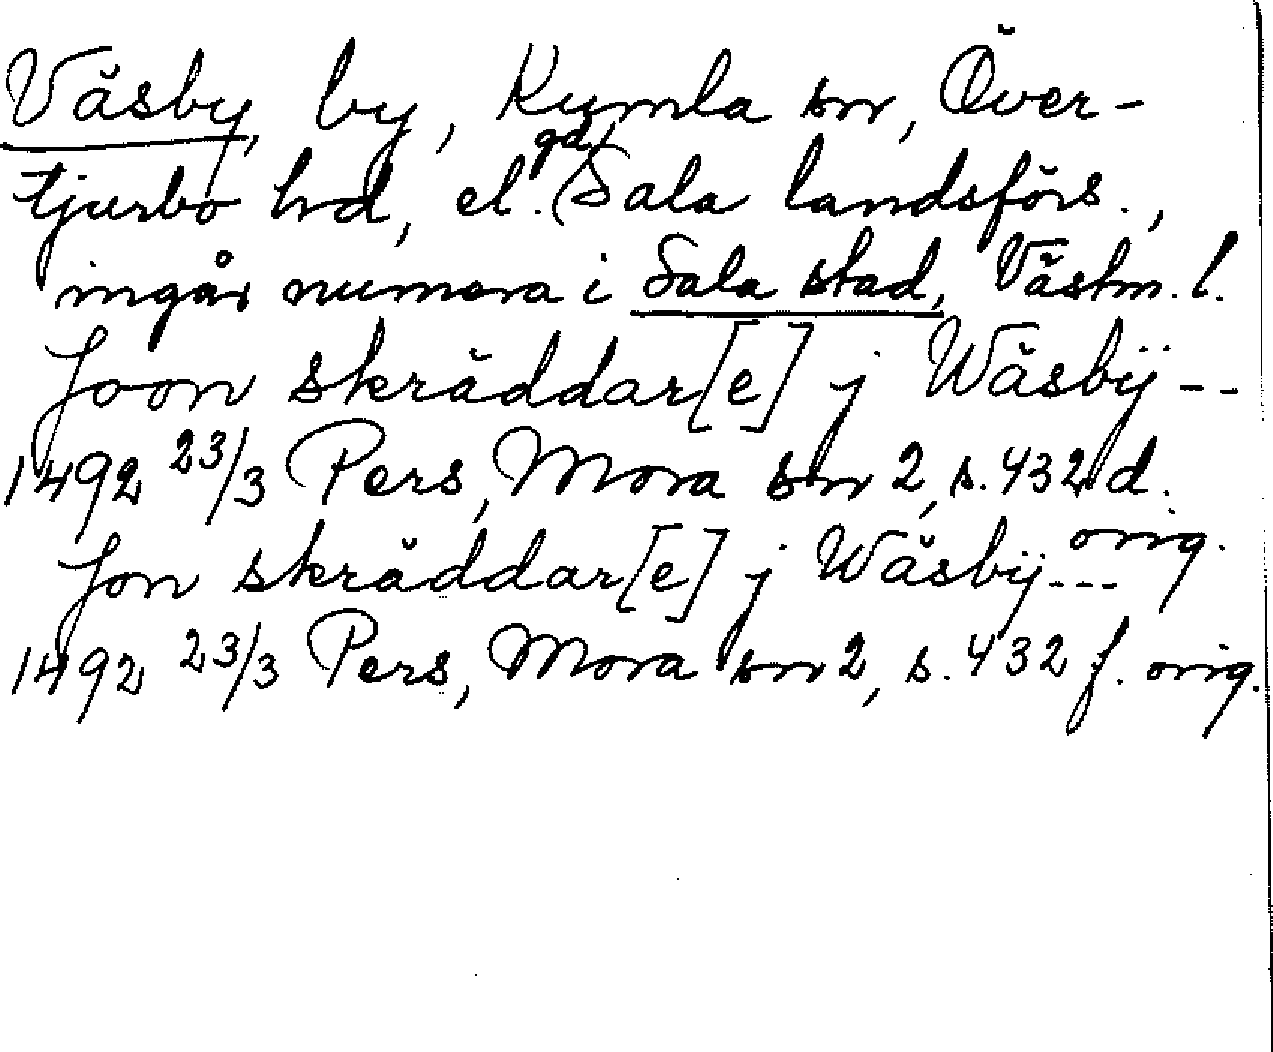 Väsby, by, Kumla sn, Över-
tjurbo hd, el. gd, (Sala landsförs.,
ingår numera i Sala stad, Västm. l.
Joon skräddar[e] j Wäsbÿ --
1492 23/3 Pers, Mora sn 2, s. 432 d.
orig.
Jon skräddar[e] j Wäsbÿ ---
1492 23/3 Pers, Mora sn 2, s. 432 f. orig.